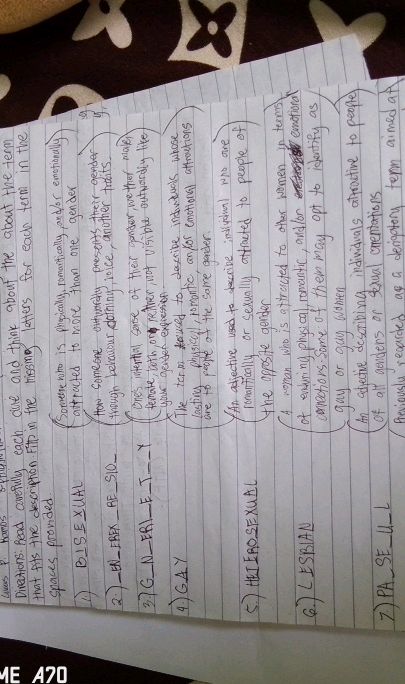 Directions: Read carefully each clue and think about the about the term
that fits the description. Fill in the missing letters for each term in the
spaces provided
1.) B I S E X U A L (Someone who is physically, romantically, and/or emotionally
attracted to more than one gender
2.) _EN_EREX_RE_SIO_ (How someone outwardly presents their gender
through behaviour, clothing, voice, another traits.
3.) G_N_ERI_E_T__Y (One's internal sense of their gender whether male
female both or neither, not visible outwardly like
your gender expression
4.) G A Y (The term used to describe individuals whose
lasting physical, romantic an/or emotional attractions
are to people of the same gender.
5.) HETEROSEXUAL (An adjective used to describe individual who are
romantically or sexually attracted to people of
the opposite gender
6.) LESBIAN (A woman who is attracted to other women in terms
of enduring physical romantic and/or emotional
connections. Some of them may opt to identify as
gay or gay women
7.) PA_SE_U_L (An adjective describing individuals attractive to people
of all genders or sexual orientations
(Previously regarded as a derogatory term aimed at
ME A70